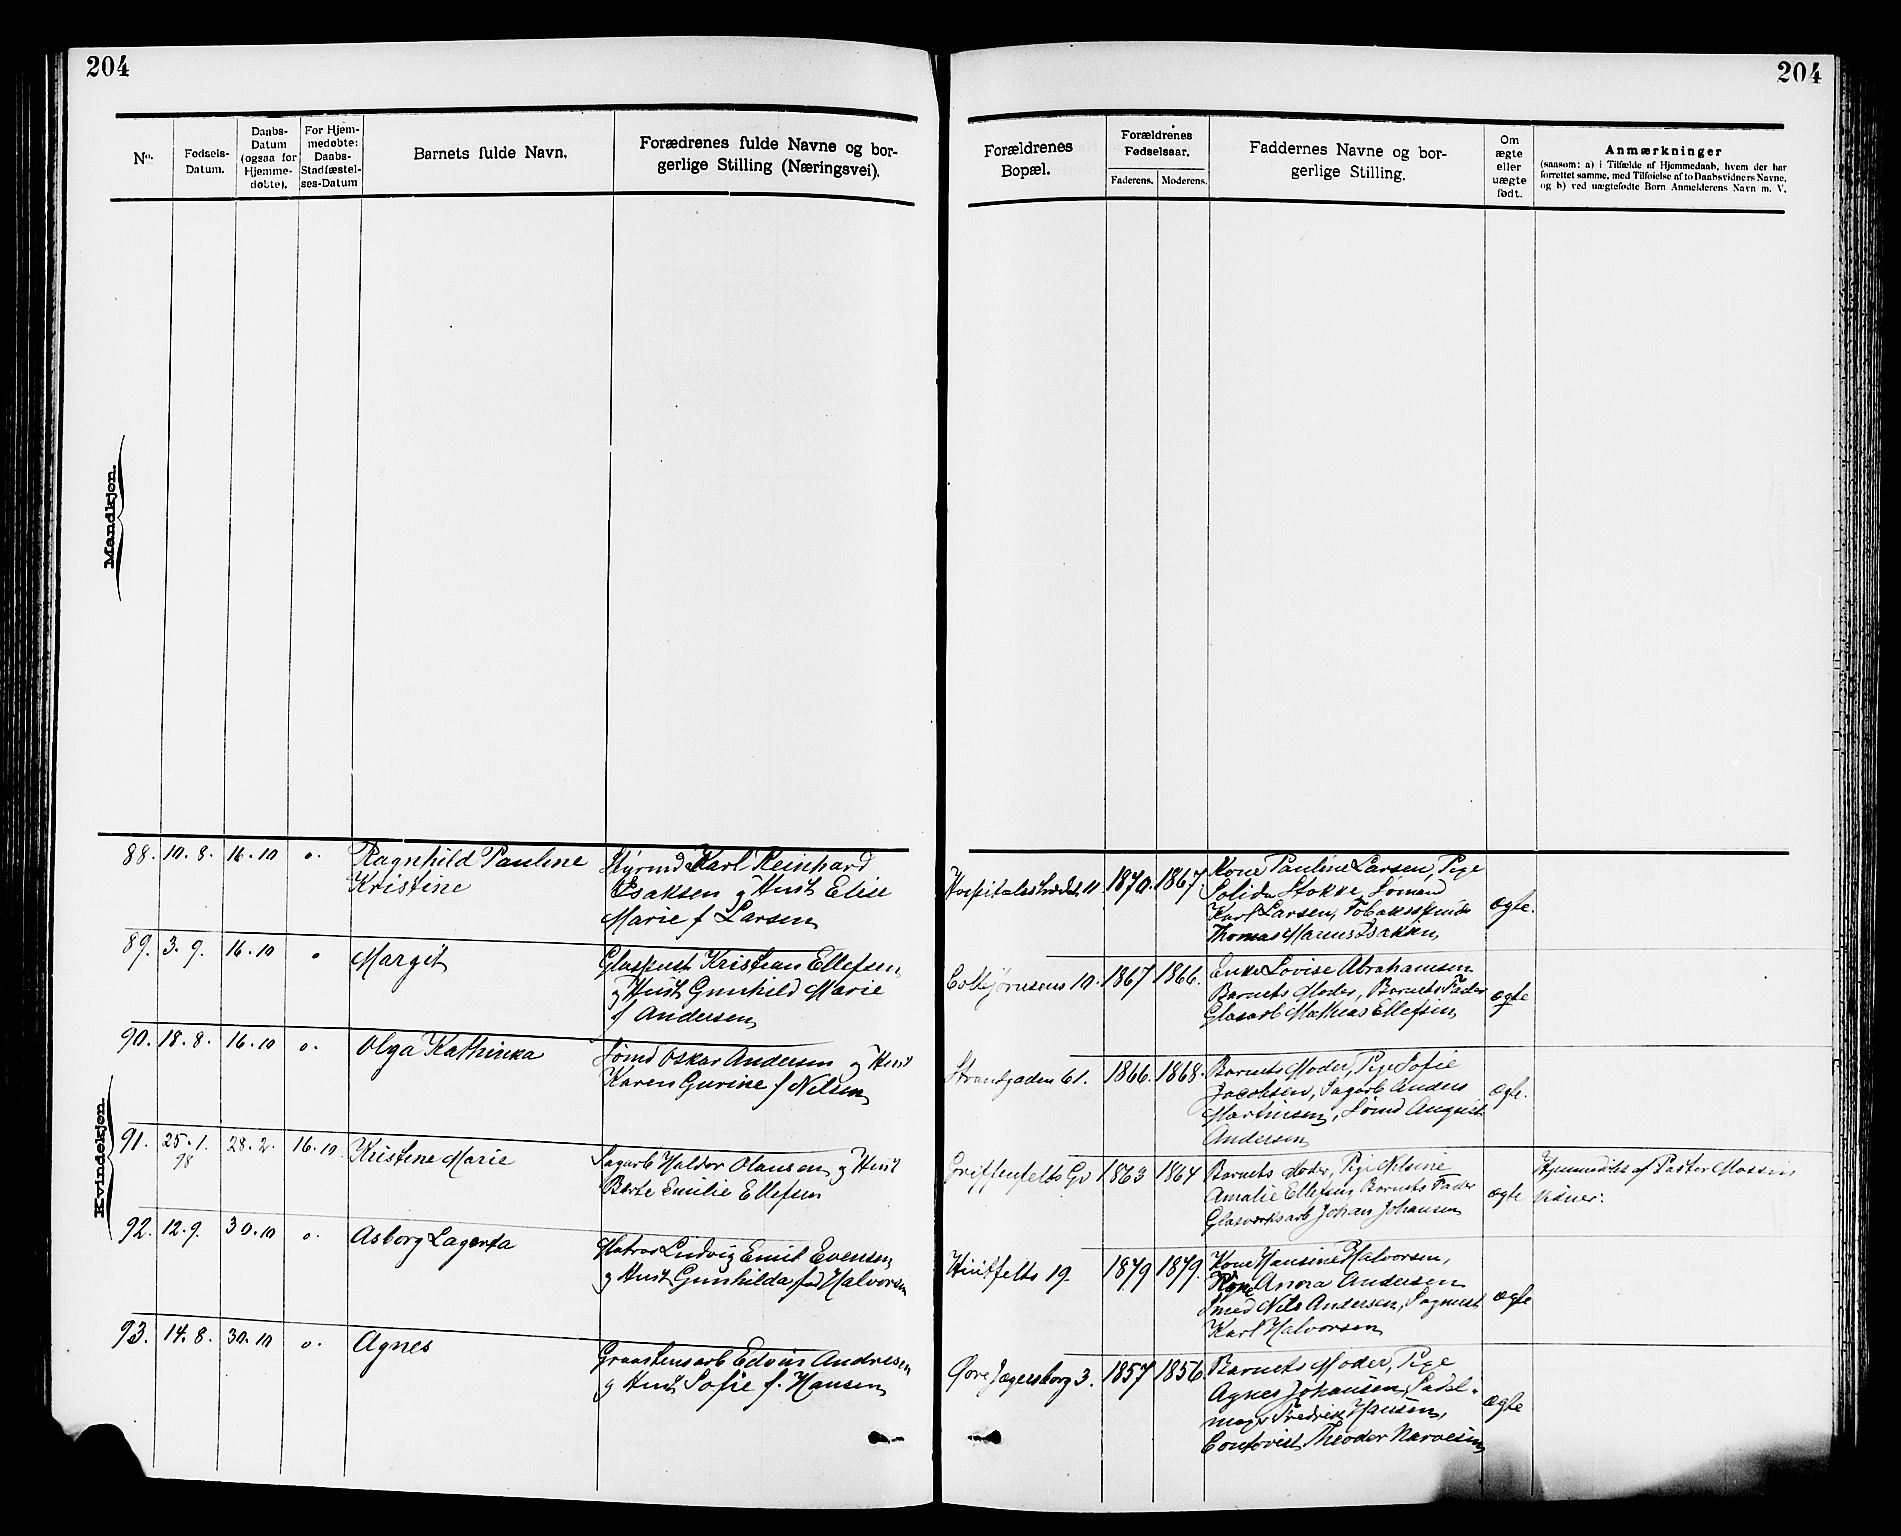 204
204
No.
Fødsels-
Datum.
Daabs-
Datum
(ogsaa for
Hjemme-
døbte).
For Hjem-
medøbte:
Daabs-
Stadfæstel-
ses-Datum
Barnets fulde Navn.
Forædrenes fulde Navne og bor-
gerlige Stilling (Næringsvei).
Forældrenes
Bopæl.
Forældrenes
Fødselsaar.
Faderens.
Moderens.
Faddernes Navne og bor-
gerlige Stilling.
Om
ægte
eller
uægte
født.
Anmærkninger
(saasom: a) i Tilfælde af Hjemmedaab, hvem der har
forrettet samme, med Tilføielse af to Daabsvidners Navne,
og b) ved uægtefødte Børn Anmelderens Navn m. V.
Mandkjøn.
Kvindekjøn.
88. 10. 8. 16. 10 o. Ragnhild Pauline
Kristine
Styrmd Karl Reinhard
Isaksen og Hust Elise
Marie f Larsen
Hospitalsstrædet 11. 1870. 1867.
Kone Pauline Larsen, Pige
Solida Stokke Sømand
Karl Larsen, Tobaksspinder
Thomas Marius Isaksen
ægte.
89. 3. 9. 16. 10 o Margit
Glaspust Kristian Ellefsen
og Hust Gunhild Marie
f Andersen
Colbjørnsens 10. 1867 1866.
Enke Lovise Abrahamsen
Barnets Moder, Barnets Fader
Glasarb Mathias Ellefsen
ægte
90. 18. 8. 16. 10 o. Olga Kathinka
Sømd Oskar Andersen og Hust
Karen Gurine f Nilsen
Strandgaden 61. 1866. 1868.
Barnets Moder, Pige Sofie
Jacobsen, Sagarb Anders
Martinsen, Sømd August
Andersen
ægte.
91. 25. 1. 98 28. 2. 16. 10. Kristine Marie
Sagarb Haldor Olausen og Hust
Berte Emilie Ellefsen
Griffenfelts Gd 1863 1864
Barnets Moder, Pige Nilsine
Amalie Ellefsen Barnets Fader
Glasverksarb Johan Johansen
ægte
Hjemmedøbt af Pastor Mossin
Vidner:
92. 12. 9. 30. 10 o. Asborg Lagerta
Matros Ludvig Emil Evensen
og Hust Gunhilda fød Halvorsen
Huitfelts 19. 1879 1879.
Kone Hansine Halvorsen,
Anora Andersen
Smed Nils Andersen,
Karl Halvorsen
ægte
93. 14. 8. 30. 10 o. Agnes
Graastensarb Edvin Andresen
og Hust Sofie f. Hansen
Øvre Jægersborg 3. 1857 1856
Barnets Moder, Pige
Agnes Johansen, Sadel-
mager Fredrik Hansen,
Theodor Narvesen
ægte